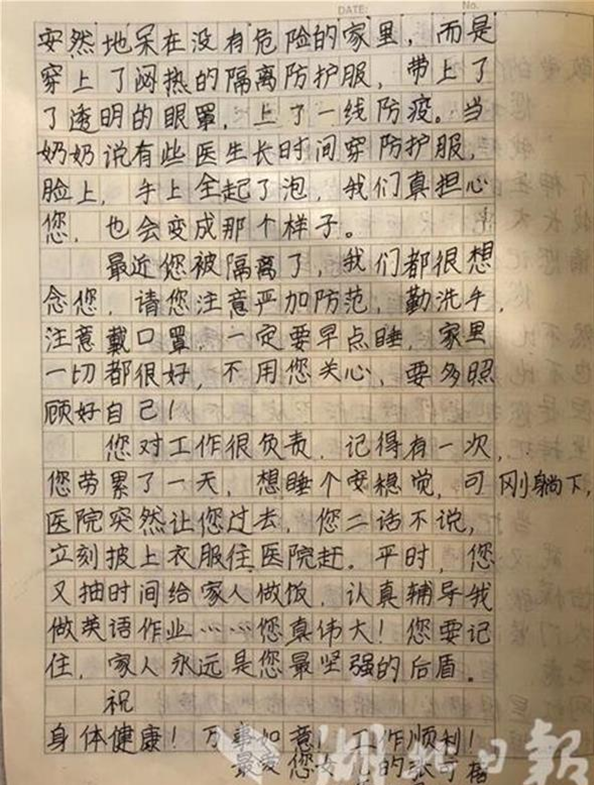 DATE: No.
安然地呆在没有危险的家里，而是
穿上了闷热的隔离防护服，带上了
了透明的眼罩，上了一线防疫。当
奶奶说有些医生长时间穿防护服，
脸上，手上全起了泡，我们真担心
您，也会变成那个样子。
最近您被隔离了，我们都很想
念您，请您注意严加防范，勤洗手，
注意戴口罩，一定要早点睡，家里
一切都很好，不用您关心，要多照
顾好自己！
您对工作很负责，记得有一次，
您劳累了一天，想睡个安稳觉，可刚躺下，
医院突然让您过去，您二话不说，
立刻披上衣服住医院赶。平时，您
又抽时间给家人做饭，认真辅导我
做英语作业……您真伟大！您要记
住，家人永远是您最坚强的后盾。
祝
身体健康！万事如意！工作顺利！
最爱您的张可
湖北日报